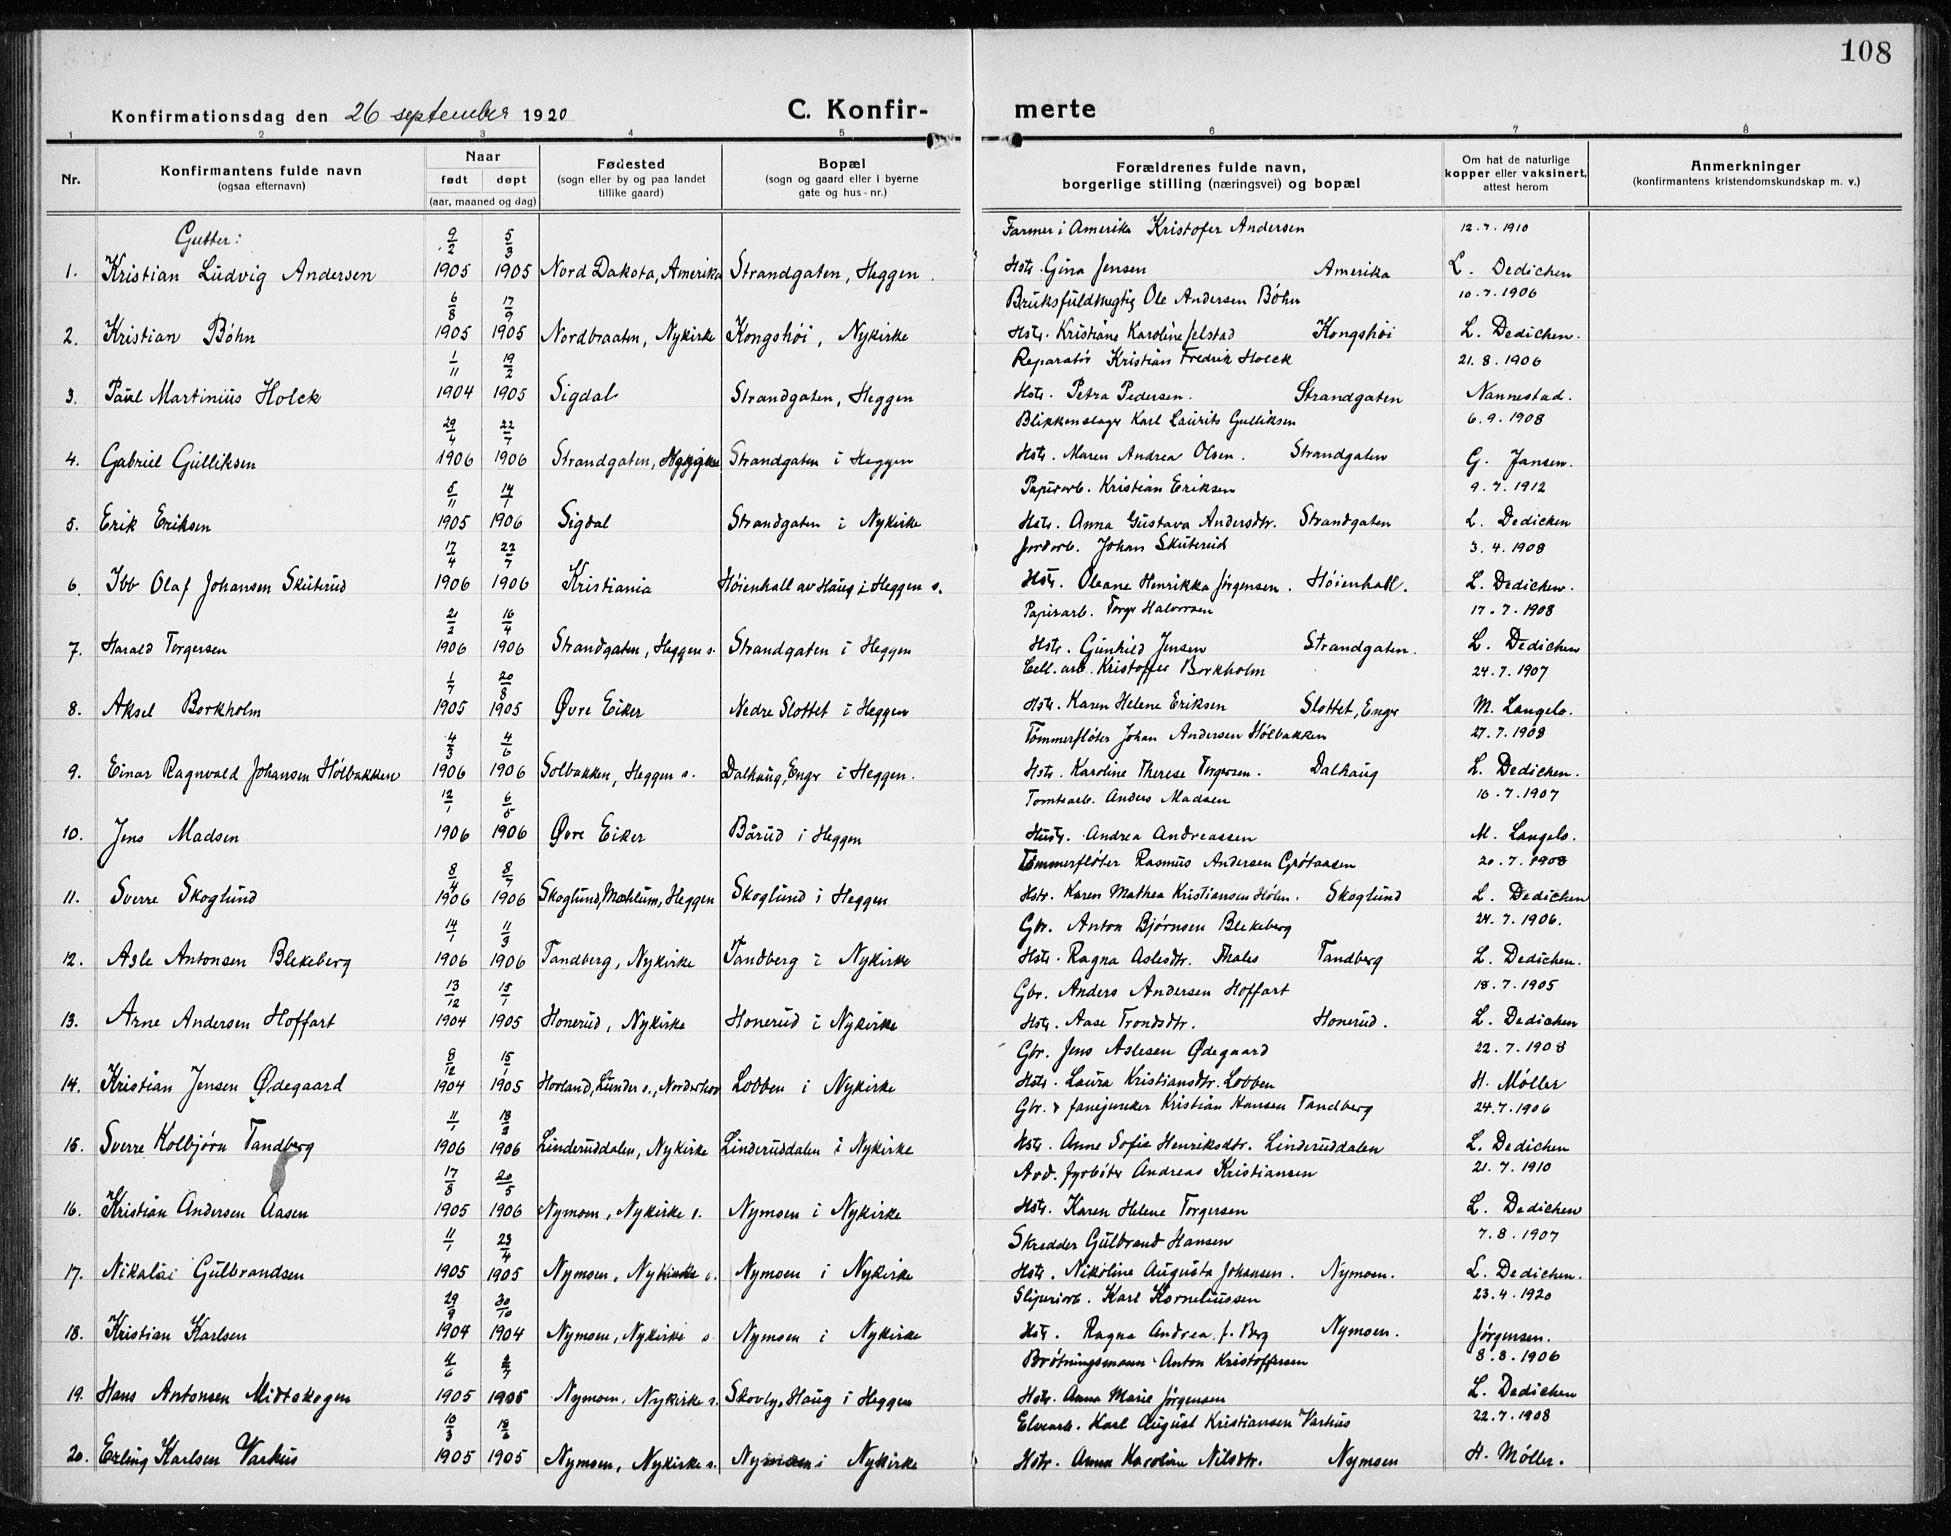 108
Konfirmationsdag den 26 september 1920 C. Konfir- merte
1 2 3 4 5 6 7 8
Nr. Konfirmantens fulde navn (ogsaa efternavn) Naar født døpt (aar, maaned og dag) Fødested (sogn eller by og paa landet tillike gaard) Bopæl (sogn og gaard eller i byerne gate og hus-nr.) Forældrenes fulde navn, borgerlige stilling (næringsvei) og bopæl Om hat de naturlige kopper eller vaksinert, attest herom Anmerkninger (konfirmantens kristendomskundskap m. v.)
Gutter: 9/2 5/3 Farmer i Amerika Kristofer Andersen 12.7.1910
1. Kristian Ludvig Andersen 1905 1905 Nord Dakota, Amerika Strandgaten, Heggen. Hstr. Gina Jensen Amerika L. Dedichen
6/8 17/9 Bruksfuldmegtig Ole Andersen Bøhn 10.7.1906
2. Kristian Bøhn 1905 1905 Nordbraaten, Nykirke Kongshøi, Nykirke Hstr. Kristiane Karoline Jelstad Kongshøi L. Dedichen.
1/11 19/2 Reparatør Kristian Fredrik Holck 21.8.1906
3. Paul Martinius Holck 1904 1905 Sigdal Strandgaten, Heggen Hstr. Petra Pedersen. Strandgaten Nannestad.
29/4 22/7 Blikkenslager Karl Laurits Gulliksen 6.9.1908
4. Gabriel Gulliksen 1906 1906 Strandgaten, Strandgaten i Heggen Hstr. Maren Andrea Olsen. Strandgaten G. Jansen.
5/11 14/1 Papirarb. Kristian Eriksen 9.7.1912
5. Erik Eriksen 1905 1906 Sigdal Strandgaten i Nykirke Hstr. Anna Gustava Andersdtr. Strandgaten L. Dedichen
17/4 22/7 Jordarb. Johan Skuterud 3.4.1908
6. Ibb Olaf Johansen Skuterud 1906 1906 Kristiania Høienhall av Haug i Heggen s. Hstr. Oleane Henrikka Jørgensen. Høienhall. L. Dedichen.
21/2 16/4 Papirarb. Torger Halvorsen 17.7.1908
7. Harald Torgersen 1906 1906 Strandgaten, Heggen s. Strandgaten i Heggen Hstr. Gunhild Jensen Strandgaten. L. Dedichen
1/7 20/8 Cell. arb. Kristoffer Borkholm 24.7.1907
8. Aksel Borkholm 1905 1905 Øvre Eiker Nedre Slottet i Heggen Hstr. Karen Helene Eriksen Slottet, Enger M. Langelo.
4/3 4/6 Tømmerfløter Johan Andersen Hølbakken 27.7.1908
9. Einar Ragnvald Johansen Hølbakken 1906 1906 Solbakken, Heggen s. Dalhaug, Enger i Heggen. Hstr. Karoline Therese Torgersen. Dalhaug L. Dedichen.
12/1 6/5 Tomtearb. Anders Madsen 10.7.1907
10. Jens Madsen 1906 1906 Øvre Eiker Bårud i Heggen Hustr. Andrea Andreassen M. Langelo.
8/4 8/7 Tømmerfløter Rasmus Andersen Grøtaasen 20.7.1908
11. Sverre Skoglund 1906 1906 Skoglund, Mæhlum, Heggen Skoglund i Heggen Hstr. Karen Mathea Kristiansen Holm. Skoglund L. Dedichen
14/1 11/3 Gbr. Anton Bjørnsen Blekeberg 24.7.1906.
12. Asle Antonsen Blekeberg 1906 1906 Tandberg, Nykirke Tandberg i Nykirke Hstr. Ragna Aslesdtr. Thales Tandberg L. Dedichen.
13/12 15/1 Gbr. Anders Andersen Hoffart 18.7.1905
13. Arne Andersen Hoffart 1904 1905 Honerud, Nykirke Honerud i Nykirke Hstr. Aase Trondsdtr. Honerud. L. Dedichen
8/12 15/1 Gbr. Jens Aslesen Ødegaard 22.7.1908
14. Kristian Jensen Ødegaard 1904 1905 Hovland, Lunder s., Norderhov Lobben i Nykirke Hstr. Laura Kristiansdtr. Lobben H. Møller
11/1 18/2 Gbr. & fanejunker Kristian Hansen Tandberg 24.7.1906
15. Sverre Kolbjørn Tandberg 1906 1906 Linderuddalen, Nykirke Linderuddalen i Nykirke Hstr. Anne Sofie Henriksdtr. Linderuddalen L. Dedichen
17/8 20/5 Avd. fyrbøter Andreas Kristiansen 21.7.1910
16. Kristian Andersen Aasen 1905 1906 Nymoen, Nykirke s. Nymoen i Nykirke Hstr. Karen Helene Torgersen L. Dedichen
11/1 23/4 Skredder Gulbrand Hansen 7.8.1907
17. Nikolai Gulbrandsen 1905 1905 Nymoen, Nykirke s. Nymoen i Nykirke Hstr. Nikoline Augusta Johansen. Nymoen. L. Dedichen.
29/9 30/10 Sliperiarb. Karl Korneliussen 23.4.1920
18. Kristian Karlsen 1904 1904 Nymoen, Nykirke s. Nymoen i Nykirke Hstr. Ragna Andrea f. Berg Nymoen. Jørgensen.
11/6 2/7 Brøtningsmann Anton Kristoffersen 8.8.1906
19. Hans Antonsen Midtskogen 1905 1905 Nymoen, Nykirke s. Skovly, Haug i Heggen Hstr. Anna Marie Jørgensen L. Dedichen
10/3 18/6 Elvearb. Karl August Kristiansen Varhus 22.7.1908
20. Erling Karlsen Varhus 1905 1905 Nymoen, Nykirke s. Nymoen i Nykirke Hstr. Anna Karoline Nilsdtr. Nymoen H. Møller.